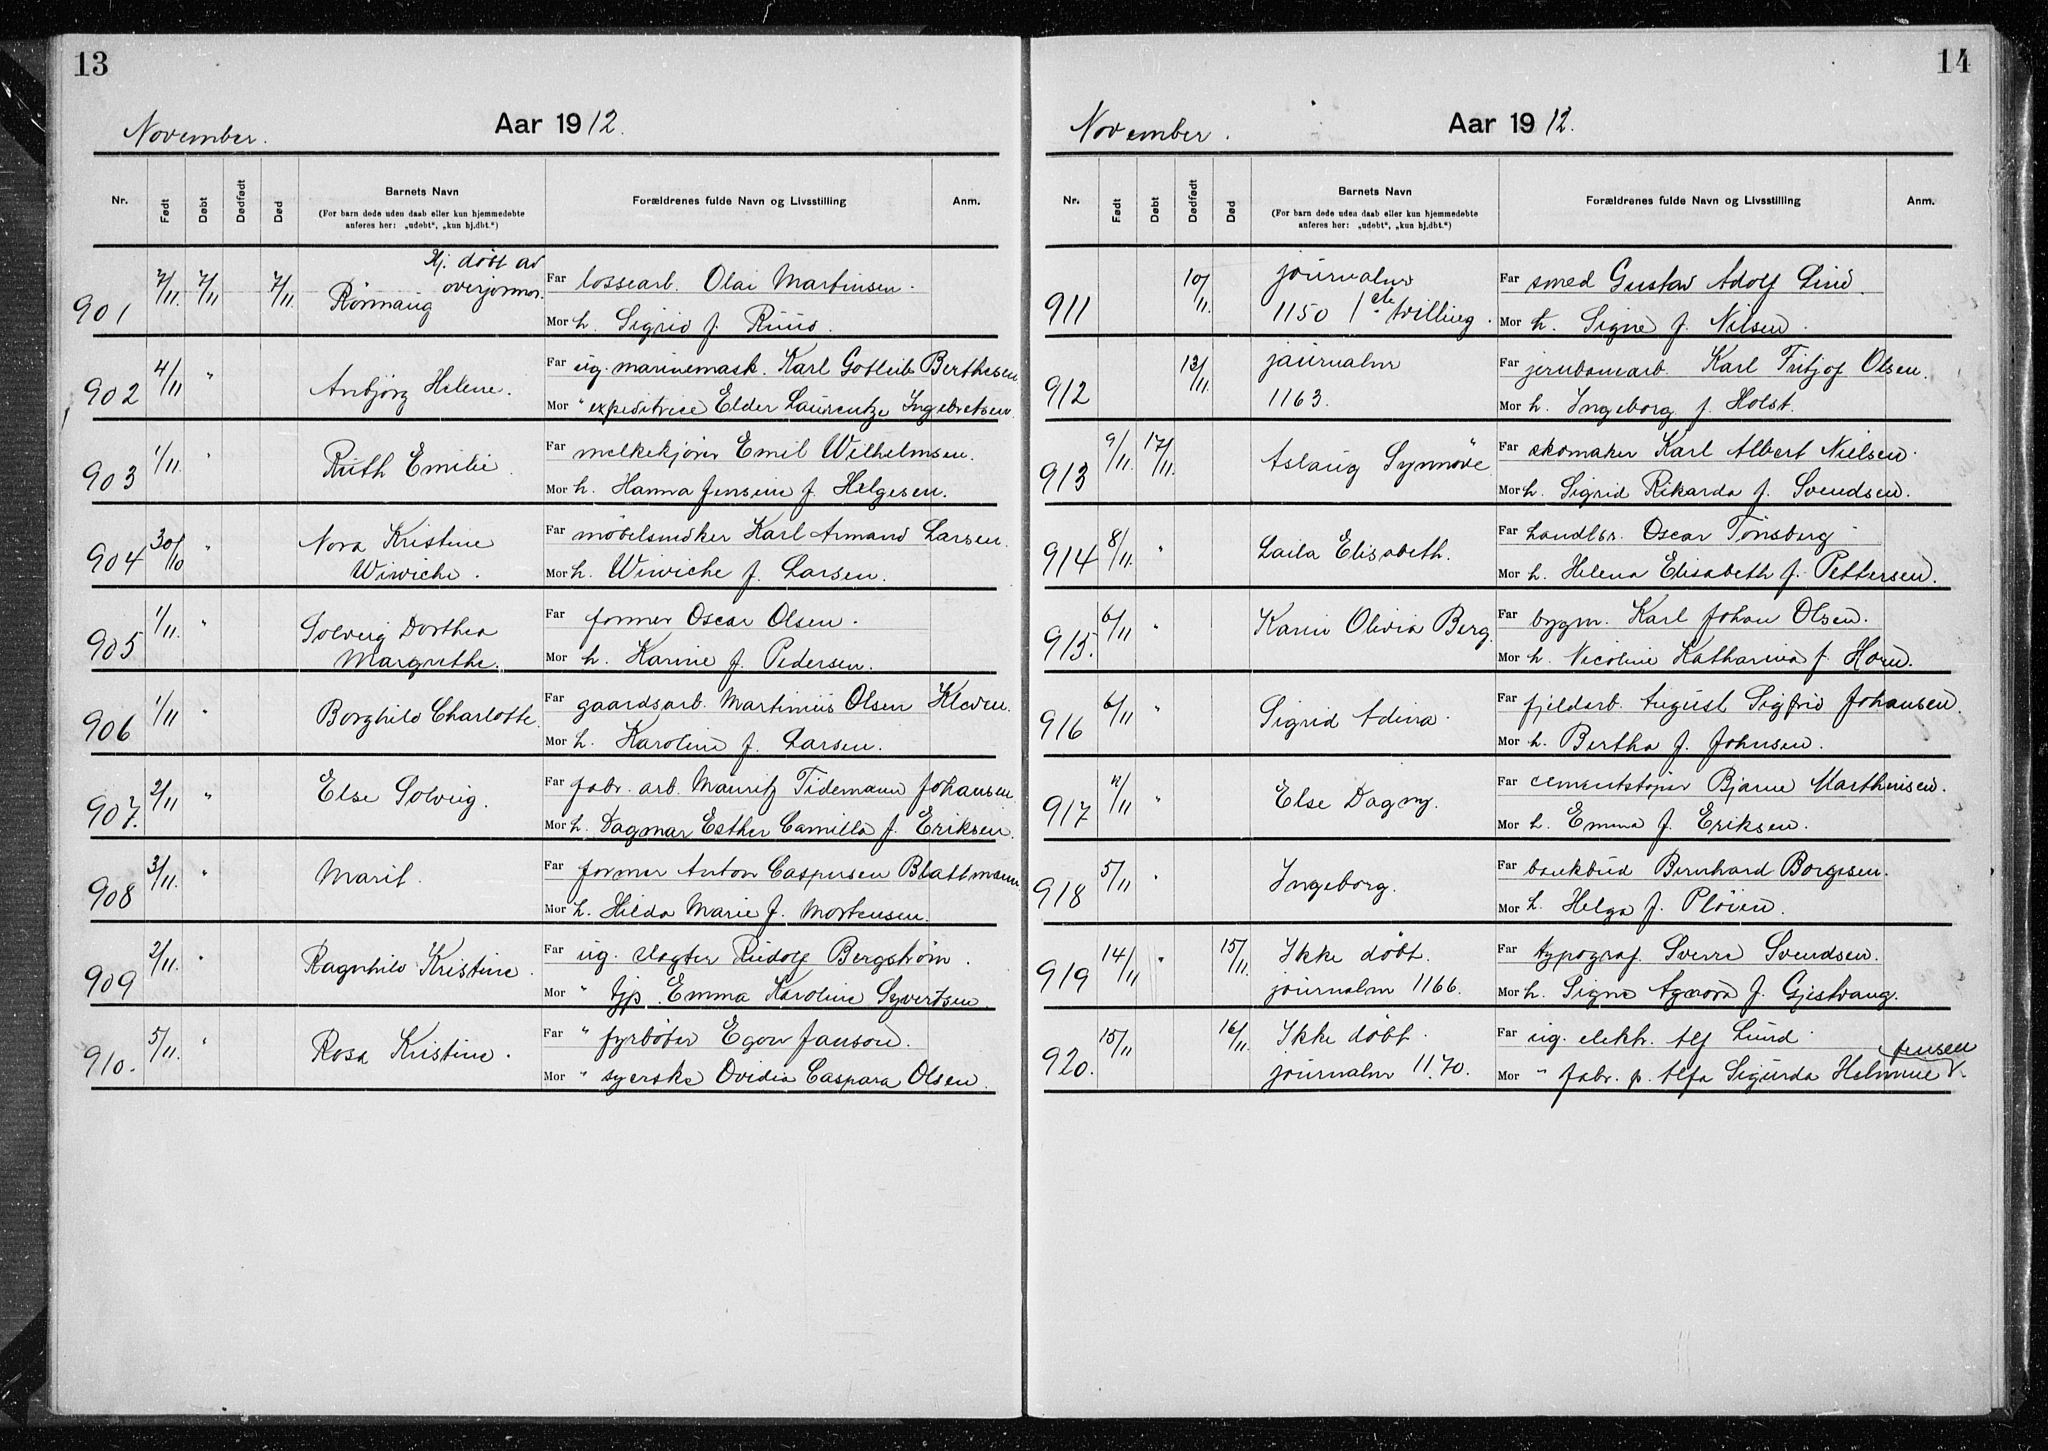 13
November.
Aar 1912.
Nr.
Født
Døbt
Dødfødt
Død
Barnets Navn
(For barn døde uden daab eller kun hjemmedøbte
anføres her: „udøbt“, „kun hj.dbt.“)
Forældrenes fulde Navn og Livsstilling
Anm.
901 7/11 7/11 7/11 Hj. døbt av
overjormor.
Rönnaug
Far lossearb. Olai Martinsen.
Mor h. Sigrid f. Ruud.
902 4/11 " Anbjörg Helene.
Far ug. marinemask. Karl Gotleib Berthesen
Mor " expeditrice Elder Laurentze Ingebretsen.
903 1/11. " Ruth Emilie.
Far melkekjörer Emil Wilhelmsen.
Mor h. Hanna Jensine f. Helgesen.
904 30/10 " Nora Kristine
Wiwiche.
Far möbelsnedker Karl Armand Larsen.
Mor h. Wiwiche f. Larsen.
905 1/11. " Solveig Dorthea
Margrethe.
Far former Oscar Olsen.
Mor h. Karine f. Pedersen.
906 1/11 " Borghild Charlotte.
Far gaardsarb. Martinius Olsen Kleven.
Mor h. Karoline f. Larsen.
907. 2/11 " Else Solveig.
Far fabr. arb. Mauritz Tidemann Johansen
Mor h. Dagmar Esther Camilla f. Eriksen.
908 3/11. " Marit.
Far former Anton Caspersen
Mor h. Hilda Marie f. Mortensen.
909 2/11. " Ragnhild Kristine.
Far ug. slagter Rudolf Bergström.
Mor " tjp. Emma Karoline Syvertsen
910. 5/11. " Rosa Kristine.
Far " fyrböter Egon Janson.
Mor " syerske Ovidia Caspara Olsen.
14
November.
Aar 1912.
Nr.
Født
Døbt
Dødfødt
Død
Barnets Navn
(For barn døde uden daab eller kun hjemmedøbte
anføres her: „udøbt“, „kun hj.dbt.“)
Forældrenes fulde Navn og Livsstilling
Anm.
911 10/11. journalnr
1150 1ste tvilling.
Far smed Gustav Adolf Lind.
Mor h. Signe f. Nilsen.
912 13/11. journalnr
1163.
Far jernbanearb. Karl Fritjof Olsen.
Mor h. Ingeborg f. Holst.
913 9/11. 17/11. Aslaug Synnöve
Far skomaker Karl Albert Nielsen.
Mor h. Sigrid Rikarda f. Svendsen.
914 8/11. " Laila Elisabeth.
Far handlsr. Oscar Tönsberg
Mor h. Helena Elisabeth f. Pettersen.
915. 6/11 " Karin Olivia Berg.
Far bygm. Karl Johan Olsen.
Mor h. Nicoline Katharina f. Horn.
916 6/11 " Sigrid Adina.
Far fjeldarb. August Sigfrid Johansen.
Mor h. Bertha f. Johnsen.
917 /11 " Else Dagny.
Far cementstöper Bjarne Marthinsen.
Mor h. Emma f. Eriksen.
918 5/11 " Ingeborg.
Far bankbud Bernhard Borgersen.
Mor h. Helga f. Plöien.
919 14/11 " 15/11. Ikke döbt.
journalnr 1166.
Far typograf Sverre Svendsen.
Mor h. Signe f. Gjestvang.
920. 15/11 16/11. Ikke döbt.
journalnr 1170.
Far ug. elektr. Alf Lund.
Jensen
Mor " fabr. p. Alfa Sigurda Helmine